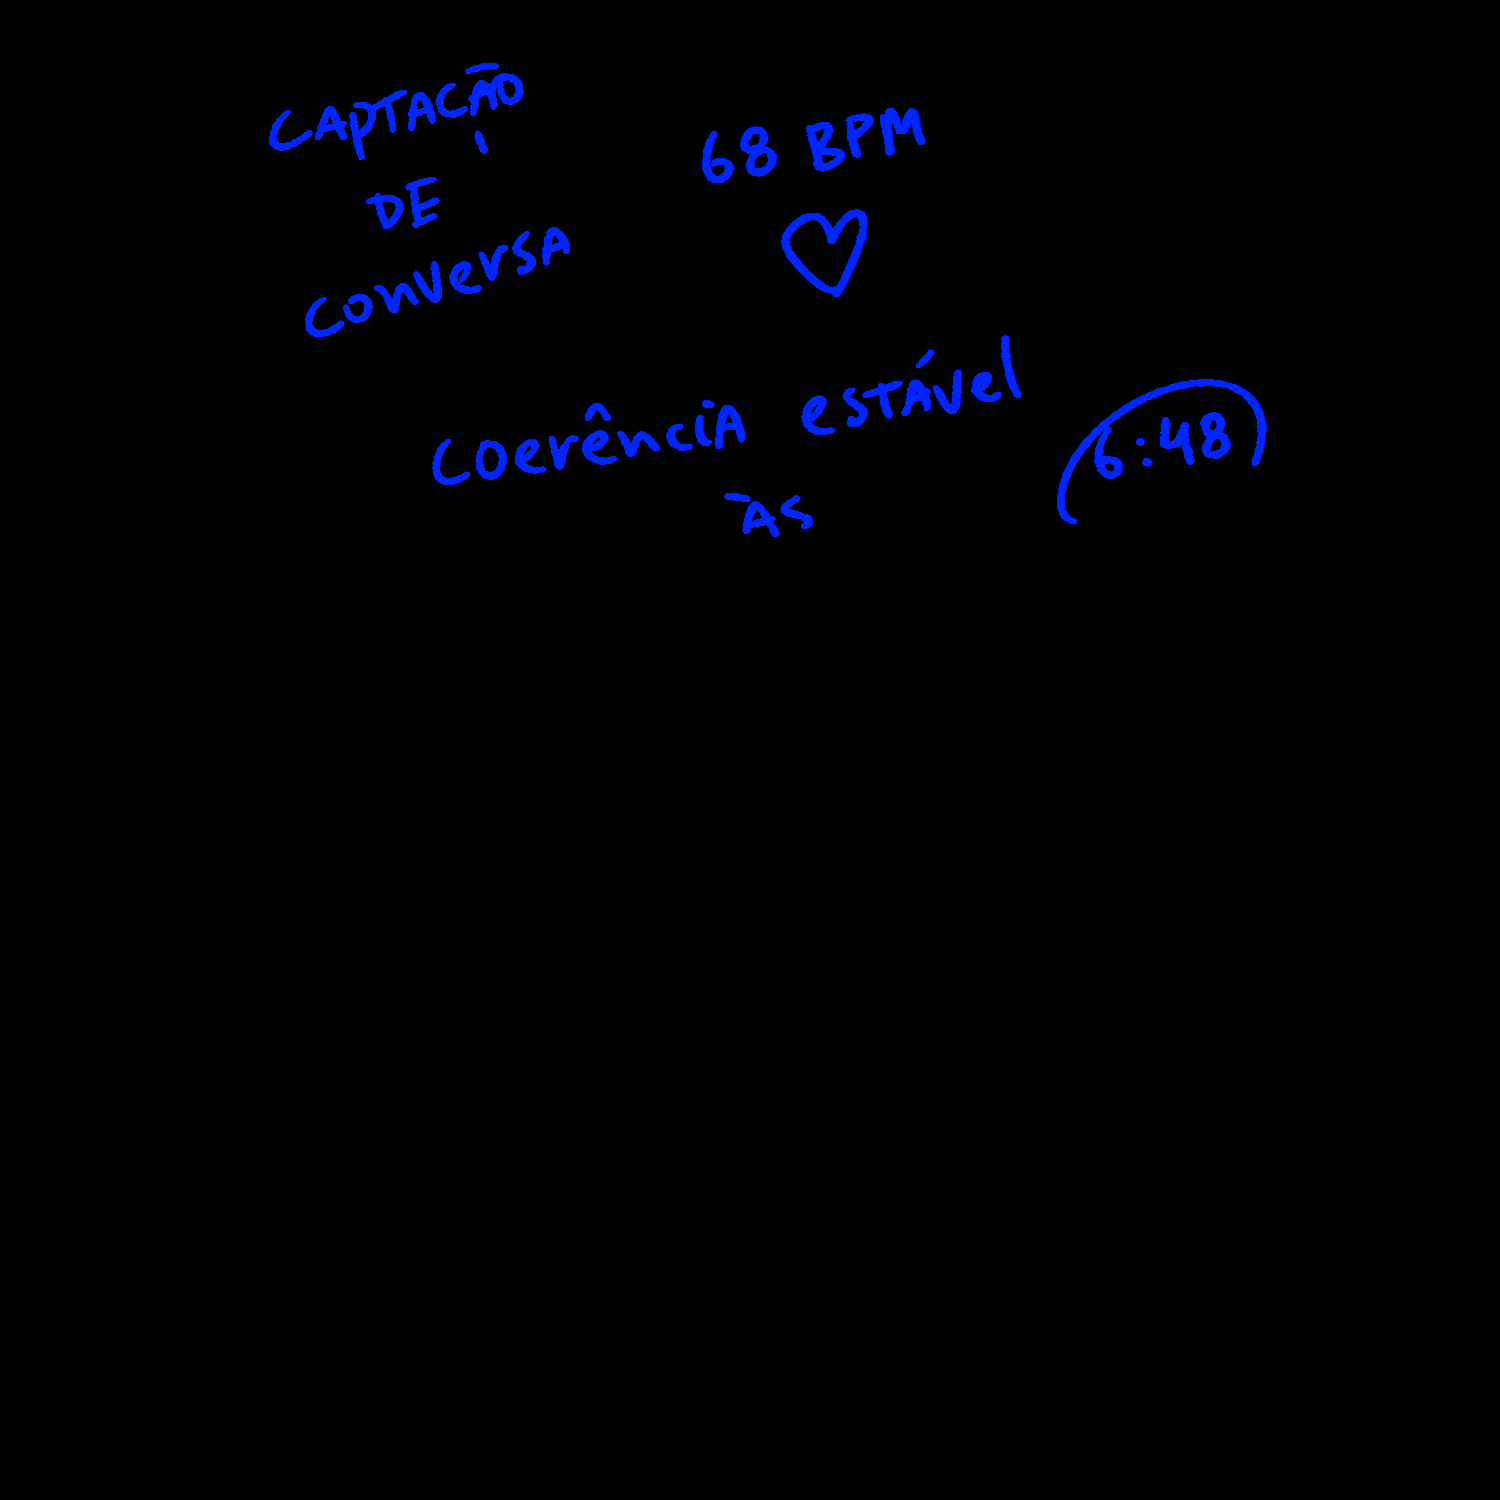 CAPTAÇÃO
DE
conversA
68 BPM
coerênciA estável
ÀS
6:48